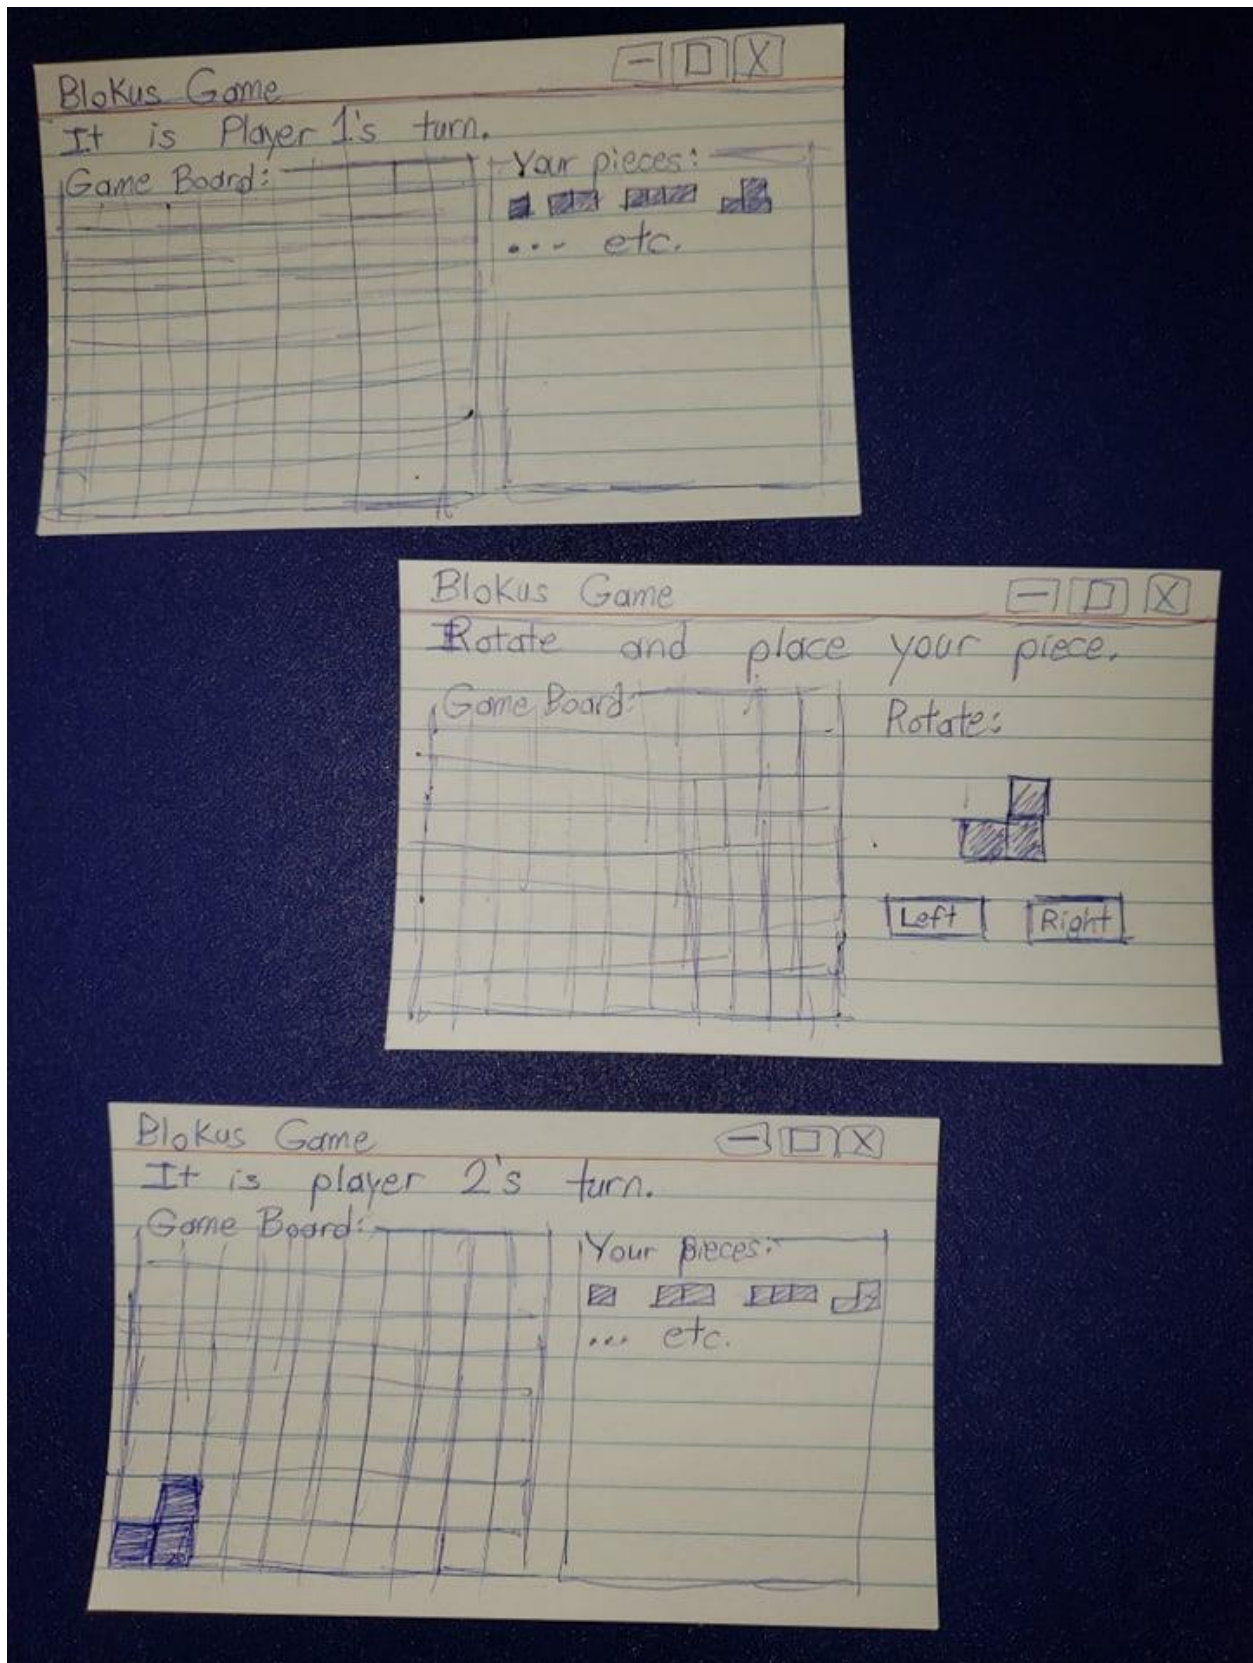 Blokus Game — □ X
It is Player 1's turn.
Game Board:
Your pieces:
... etc.
Blokus Game — □ X
Rotate and place your piece.
Game Board:
Rotate:
Left Right
Blokus Game — □ X
It is player 2's turn.
Game Board:
Your pieces:
... etc.